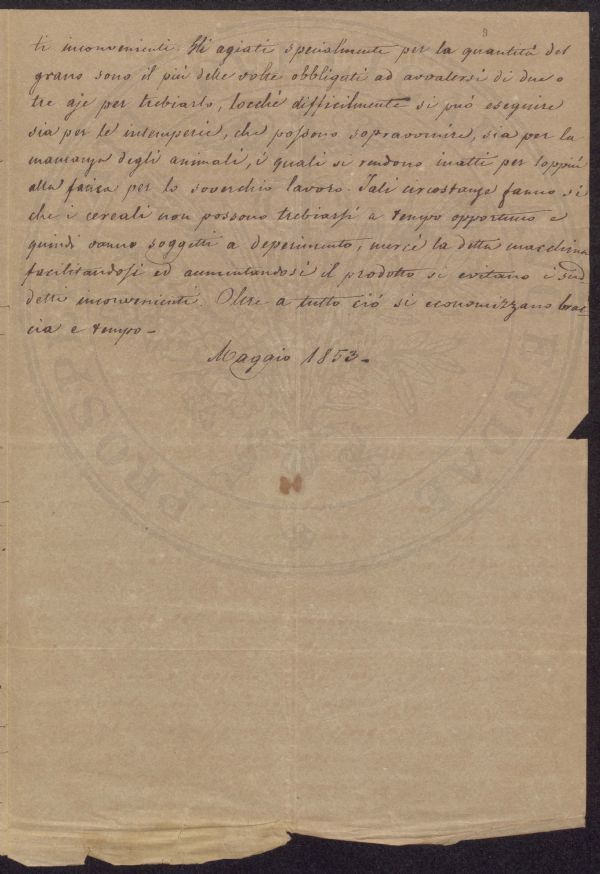 3
ti inconvenienti. Gli agiati specialmente per la quantità del
grano sono il più delle volte obbligati ad avvalersi di due o
tre aje per trebiarlo, locchè difficilmente si può eseguire
sia per le intemperie, che possono sopravvenire, sia per la
mancanza degli animali, i quali si rendono inatti per loppiù
alla fatica per lo soverchio lavoro. Tali circostanze fanno si
che i cereali non possono trebiarsi a tempo opportuno e
quindi vanno soggetti a deperimento, mercè la detta macchina
facilitandosi ed aumentandosi il prodotto si evitano i sud
detti inconvenienti. Oltre a tutto ciò si economizzano brac
cia e tempo –
Maggio 1853 –
PROSPI ENDAE